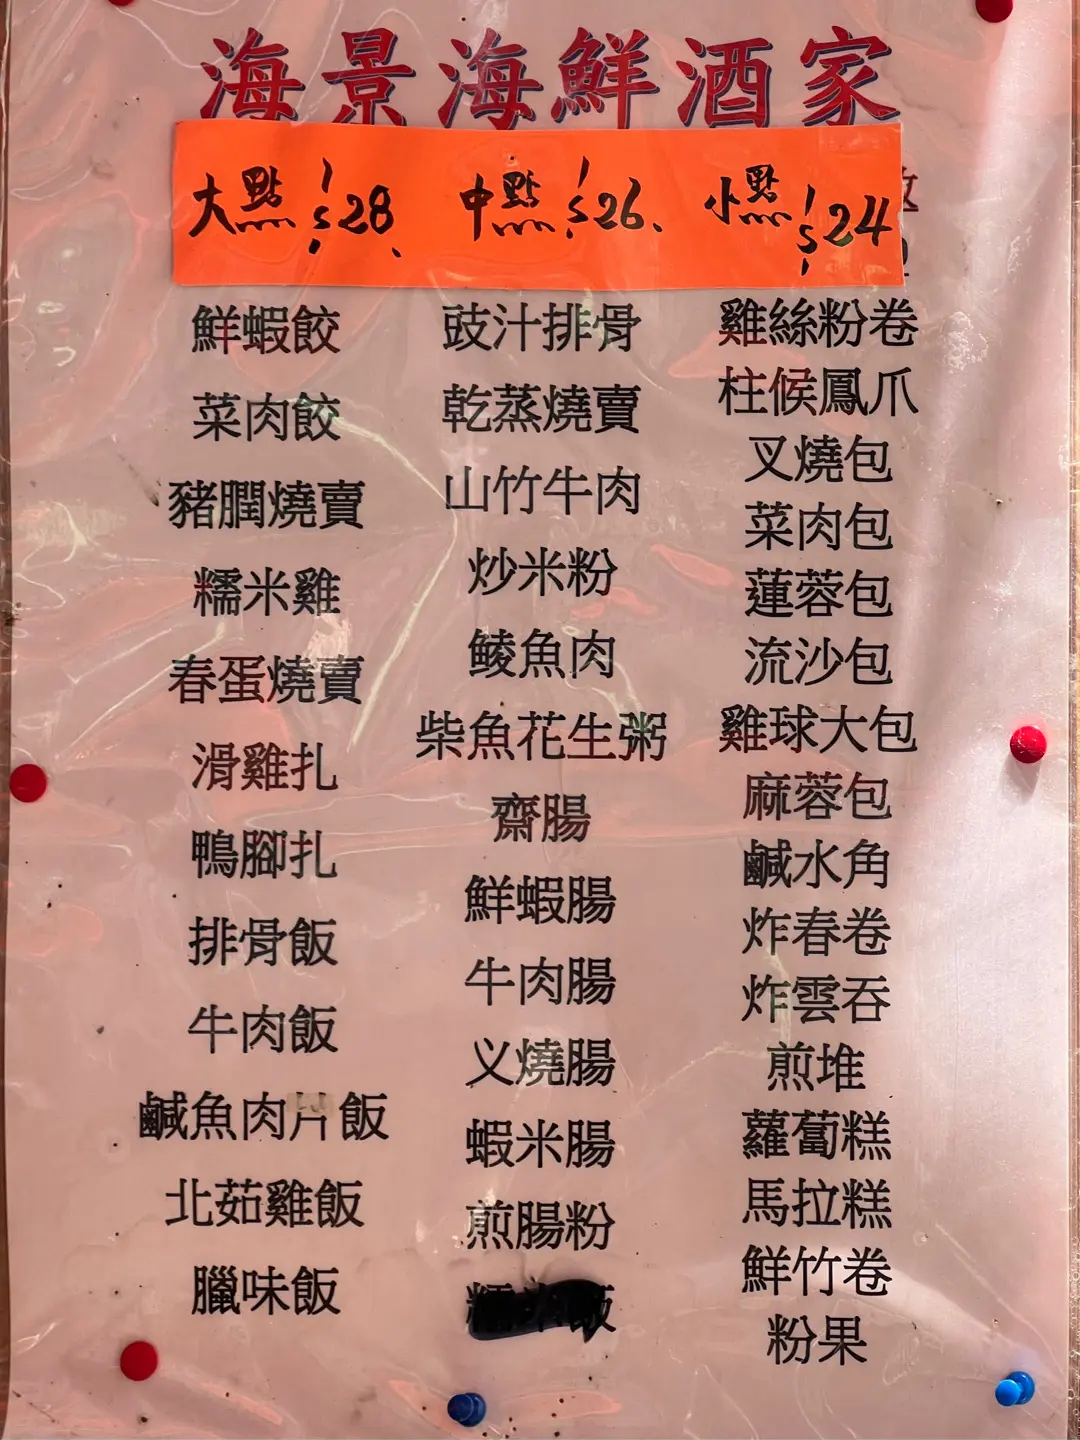 海景海鮮酒家
大點 $28、 中點 $26、 小點 $24
鮮蝦餃
菜肉餃
豬膶燒賣
糯米雞
春蛋燒賣
滑雞扎
鴨腳扎
排骨飯
牛肉飯
鹹魚肉片飯
北茹雞飯
臘味飯
豉汁排骨
乾蒸燒賣
山竹牛肉
炒米粉
鲮魚肉
柴魚花生粥
齋腸
鮮蝦腸
牛肉腸
义燒腸
蝦米腸
煎腸粉
雞絲粉卷
柱候鳳爪
叉燒包
菜肉包
蓮蓉包
流沙包
雞球大包
麻蓉包
鹹水角
炸春卷
炸雲吞
煎堆
蘿蔔糕
馬拉糕
鮮竹卷
粉果